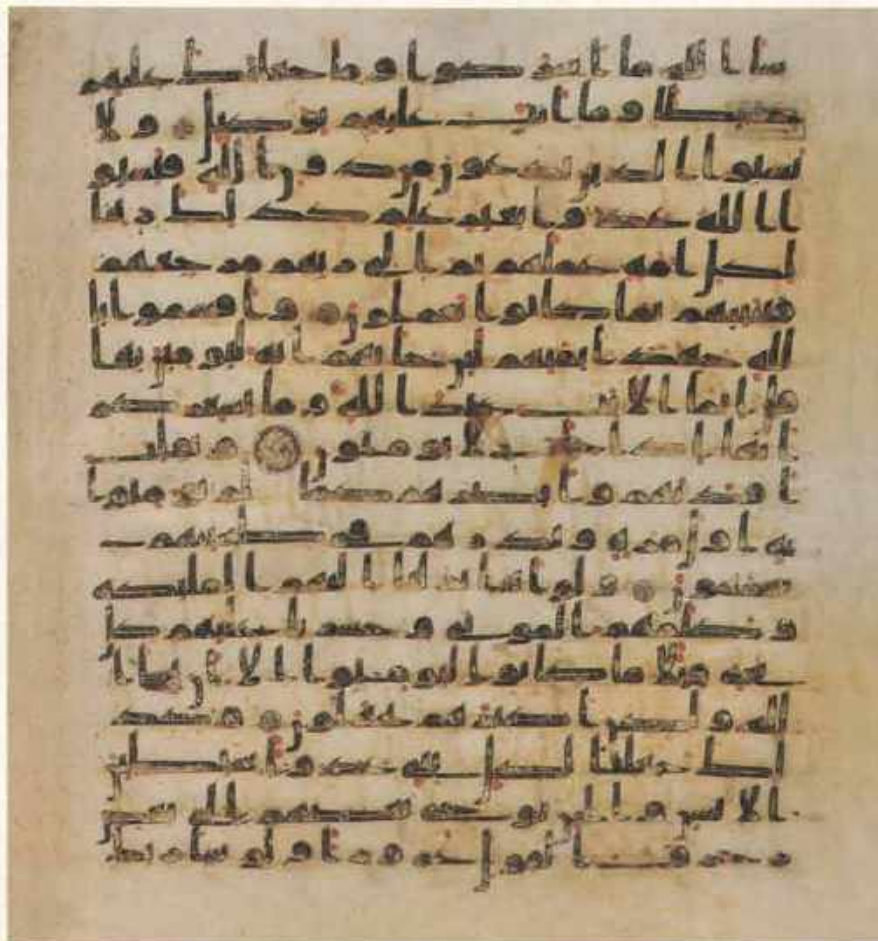 شا الله ما اشركوا وما جعلنك عليهم
حفيظا وما انت عليهم بوكيل ولا
تسبوا الذين يدعون من دون الله فيسبوا
الله عدوا بغير علم كذلك زينا
لكل امة عملهم ثم الى ربهم مرجعهم
فينبئهم بما كانوا يعملون واقسموا با
لله جهد ايمنهم لئن جاتهم اية ليومنن بها
قل انما الايت عند الله وما يشعركم
انها اذا جات لا يومنون ونقلب
افدتهم وابصرهم كما لم يومنوا
به اول مرة ونذرهم في طغينهم
يعمهون ولو اننا نزلنا اليهم الملئكة
وكلمهم الموتى وحشرنا عليهم كل
شي قبلا ما كانوا ليومنوا الا ان يشا
الله ولكن اكثرهم يجهلون وكذ
لك جعلنا لكل نبي عدوا شيطين
الانس والجن يوحي بعضهم الى بعض
زخرف القول غرورا ولو شا ربك